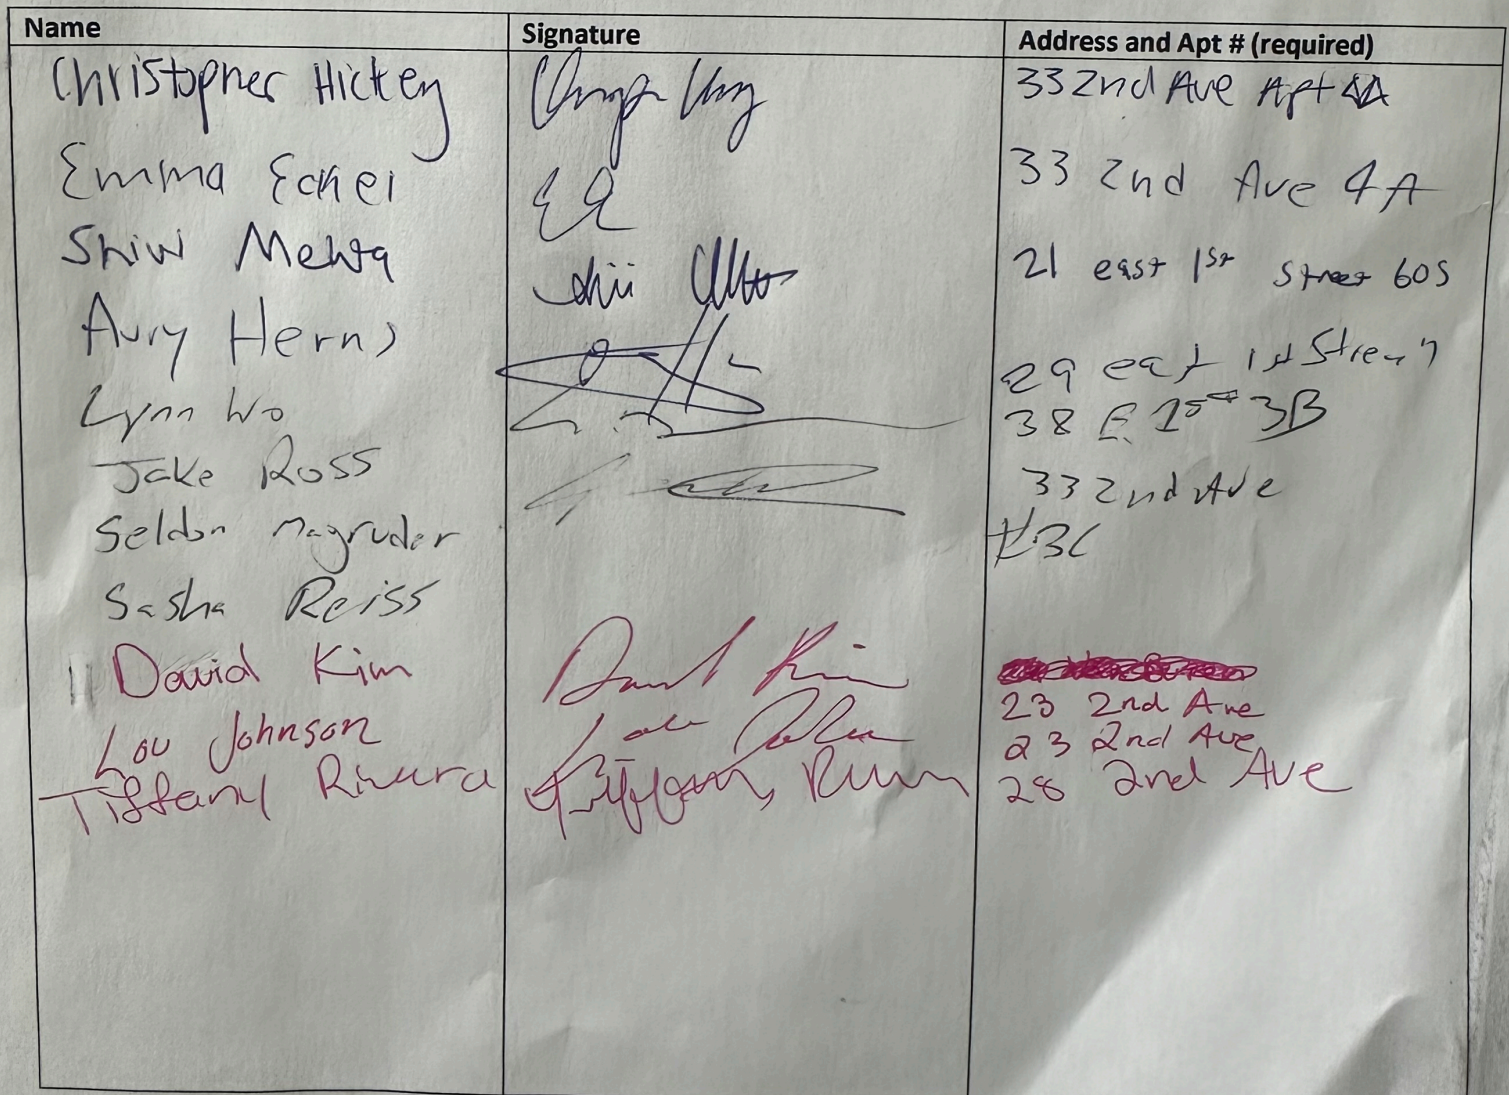 Name Signature Address and Apt # (required)
Christopher Hickey 33 2nd Ave Apt 4A
Emma Eckel 33 2nd Ave 4A
Shivi Mehta 21 east 1st Street 605
Avry Herns 29 east 1st Street
Lynn Wo 38 E. 1st 3B
Jake Ross 33 2nd Ave
Seldon Magruder #3C
Sasha Reiss
David Kim David Kim
23 2nd Ave
Lou Johnson Lou 23 2nd Ave
Tiffany Rivera Tiffany 28 2nd Ave